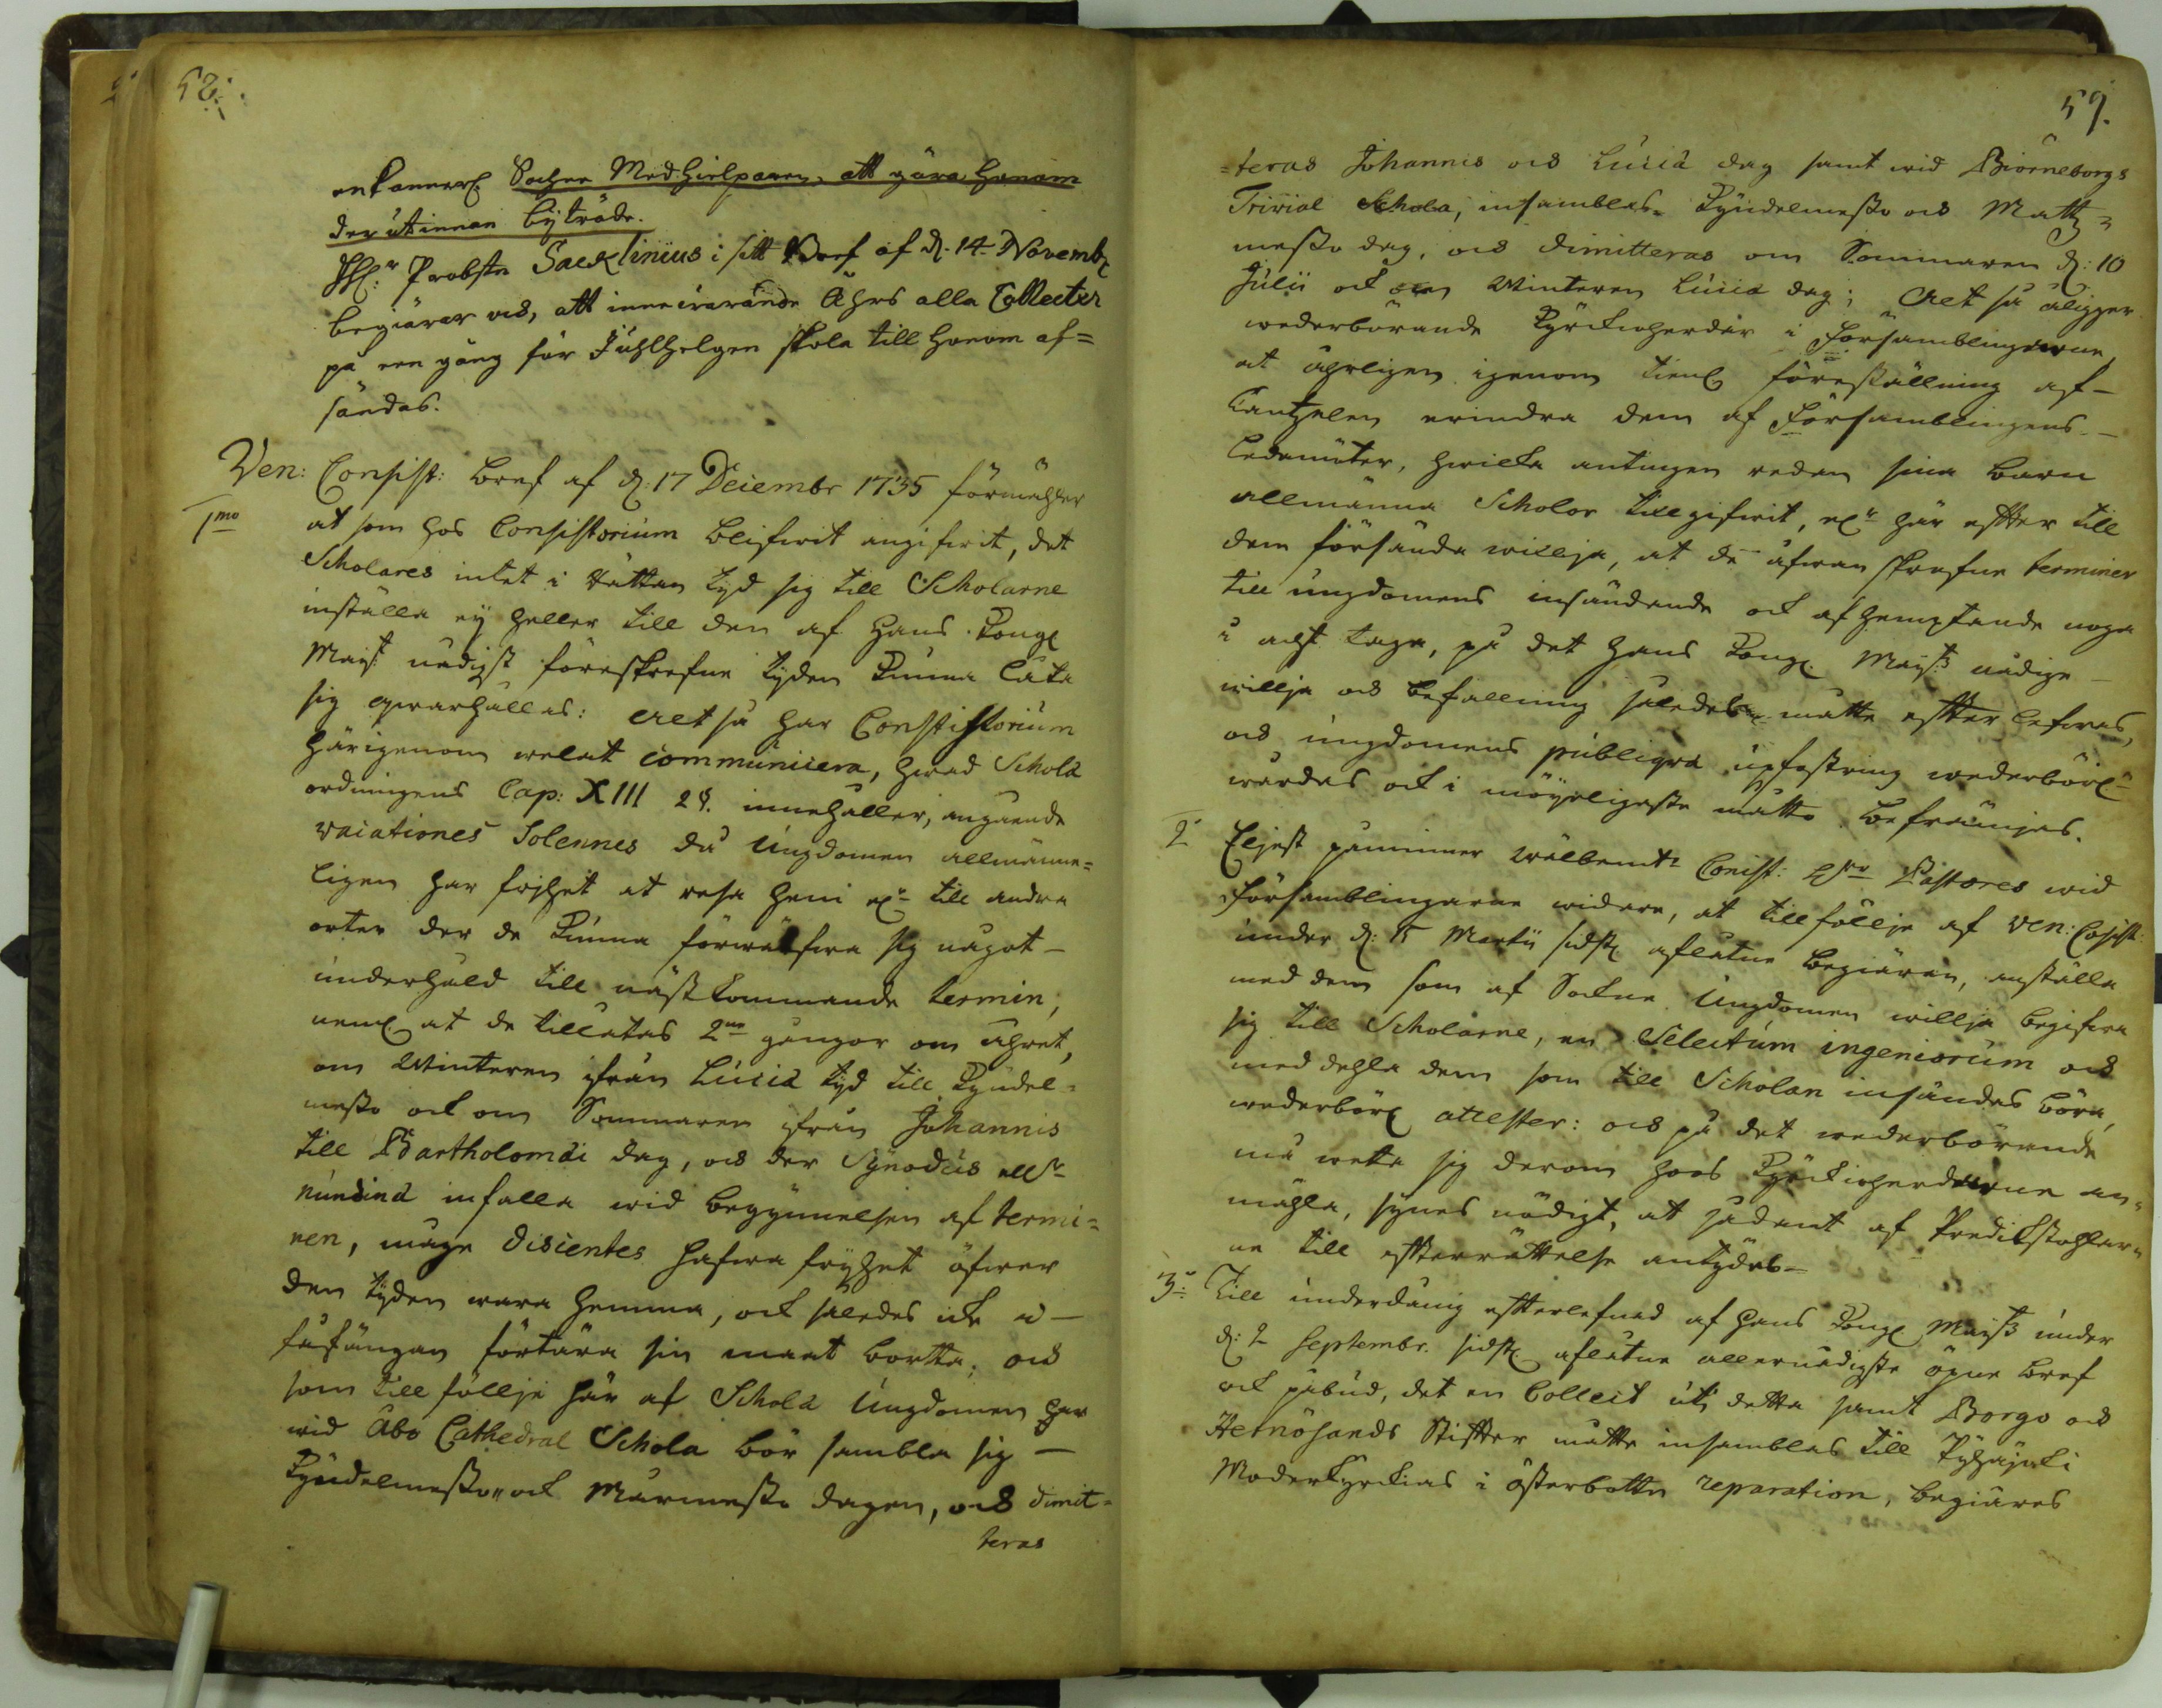 58.
ankannerl. Sochne Medhielparen, att göra honom
der utinnan bijträde.
H:r Probsten Sacklinius i sitt Bref af d. 14 Novembr
begiärar ock, att innevarande Åhrs alla Collecter
på een gång för Juhlhelgen skola till honom af=
sändas.
Ven: Consist: bref af d: 17 Decembr 1735 förmähler
1mo at som hos Consistorium blifwit angifwit, det
Scholares intet i rättan tijd sig till Scholarne
inställa ej heller till den af Hans Kongl
Maij:t nådigst föreskrefne tijden kunna låta
sig qwarhållas: altså har Consistorium
härigenom welat communicera, hwad Scholæ
ordningens Cap: XIII 2 §. innehåller, angående
vacationes Solennes då Ungdomen allmänne=
ligen har frihet at resa hem elr till andra
orter der de kunna förwärfwa sig något
underhåld till nästkommande termin,
neml at de tillåtas 2ne gångor om åhret,
om Winteren ifrån Luciæ tijd till Kyndel=
messo och om Sommaren ifrån Johannis
till Bartholomæi dag, och der Synodus ellr
nundinæ infalla wid begynnelsen af termi=
nen, måge discentes hafwa frijhet öfwer
den tijden wara hemma, och således icke
fåfängan förtära sin maat bortta; och
som till föllje här af Scholæ Ungdomen här
wid Åbo Cathedral Schola bör sambla sig
Kyndelmesso och Marmesso dagen, och dimit=
teras
59.
=teras Johannis och Luciæ dag samt wid Biörneborgs
Trivial Schola, insamblas Kyndelmesso och Matt=
messo dag, och dimitteras om Sommaren d: 10
Julii och om Winteren Luciæ dag; Altså åligger
wederbörande Kyrckioherdar i Församblingarne,
at åhrligen igenom tienl föreställning af
Cantzelen erindra dem af Församblingens
Ledamöter, hwilka antingen redan sina barn
allmänna Scholor tillgifwit, elr här efter till
dem försända willja, at de ofwanskrefne terminer
till ungdomens insändande och afhemptande noga
i acht taga, på det Hans Kongl. Maij:tz nådige
willja och befallning således måtte effterlefwas,
och ungdomens publique upfostring wederbörl
wårdas och i möyeligaste måtto befrämjas.
2o Eljest påminner wälbemte Consist: Pastores wid
Församblingarne widare, at till föllje af Ven: Consist:
under d: 15 Martii sidstl aflåtne begiäran, anställa
med dem som af Sockne Ungdomen willja begifwa
sig till Scholarne, en Selectum ingeniorum och
meddehla dem som till Scholan insändas böra,
wederbörl attester: och på det wederbörande
må weta sig derom hoos Kyrckioherdarne an=
mähla, synes nödigt, at sådant af Predikstohlar=
ne till effterrättelse antydes
3o Till underdånig effterlefnad af Hans Kongl Maij:tz under
d: 2 Septembr. sidstl aflåtne allernådigste öpne bref
och påbud, det en Collect uti detta samt Borgo och
Hernösands Stiffter måtte insamblas till Pyhäjoki
Moderkyrckias i Österbotten reparation, begiäres